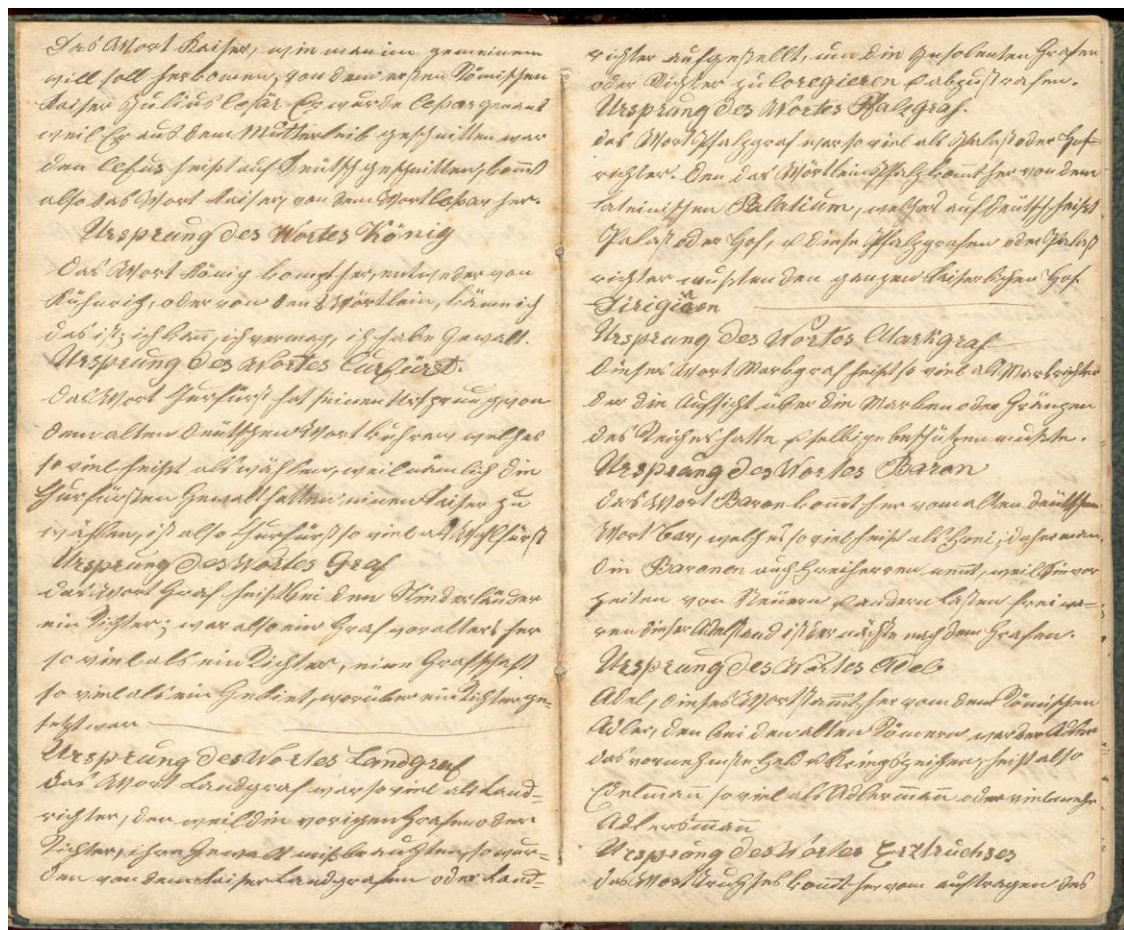 Das Wort Kaiser, wie man im gemeinem
will soll herkomen, von dem ersten Römischen
Kaiser Julius Cesar. Er wurde Cesar genent
weil Er aus dem Mutterleib geschnitten war
den Cesus heißt auf Deutsch geschnitten, komt
also das Wort Kaiser, von dem Wort Cesar her.
Ursprung des Wortes König
Das Wort König kompt her, entweder von
Kühnrich, oder von den Wörtlein, käme ich
das ist, ich kan, ich vermag, ich habe Gewalt.
Ursprung des Wortes Curfürst.
Das Wort Churfürst hat seinen Ursprung, von
dem alten Deutschen Wort kuhren welches
so viel heißt als wählen, weil nämlich die
Churfürsten Gewalt hatten einen Kaiser zu
wählen, ist also Churfürst so viel als Wahlfürst
Ursprung des Wortes Graf
das Wort Graf heißt bei den Niederländer
ein Richter; war also ein Graf vor alters her
so viel als ein Richter, eine Grafschaft
so viel als ein Gebiet, worüber ein Richter ge-
setzt war
Ursprung des Wortes Landgraf
das Wort Landgraf war so viel als Land-
richter, den weil die vorigen Grafen oder
Richter, ihre Gewalt misbrauchten, so wur-
den von dem Kaiser Landgrafen oder Land-
richter aufgestellt, um die Insolenten Grafen
oder Richter zu Coregieren & abzustrafen.
Ursprung des Wortes Pfalzgraf.
das Wort Pfalzgraf war so viel als Palast oder Hof-
richter. den das Wörtlein Pfalz komt her von dem
lateinischen Palatium, welches auf Deutsch heißt
Palast oder Hof, & diese Pfalzgrafen oder Palast
richter mußten den ganzen Kaiserlichen Hof
Dirigieren
Ursprung des Wortes Markgraf
Dieses Wort Markgraf heißt so viel als Markrichter
der die Aufsicht über die Marken oder Gränzen
des Reiches hatte & selbige beschützen mußte.
Ursprung des Wortes Baron
das Wort Baron komt her vom alten deutschen
Wort bar, welches so viel heißt als frei, daher man
die Baronen auch Freiherren nent, weil Sie vor
zeiten von Steuern & andern Lasten frei wa-
ren dieser Adelstand ist der nächste nach dem Grafen.
Ursprung des Wortes Adel
Adel, dieses Wort stamt her von dem Römischen
Adler, den bei den alten Römern war der Adler
das vornehmste Held & Kriegszeichen, heißt also
Edelmann so viel als Adlermann oder vielmehr
Adlersmann
Ursprung des Wortes Erztruchses
das Wort Truchses komt her vom auftragen des